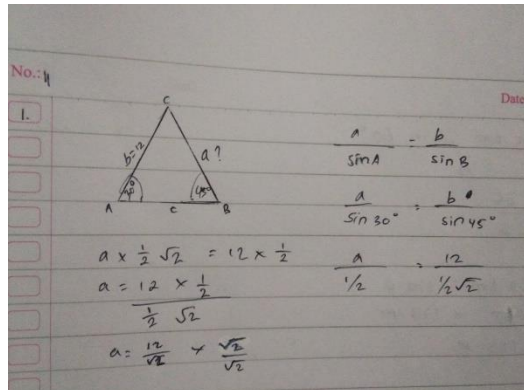 No.: 11
Date
1.
C
b=12
a?
30°
45°
A
c
B
a/sin A = b/sin B
a/sin 30° = b/sin 45°
a/1/2 = 12/1/2√2
a × 1/2 √2 = 12 × 1/2
a = 12 × 1/2 / 1/2 √2
a = 12/√2 × √2/√2